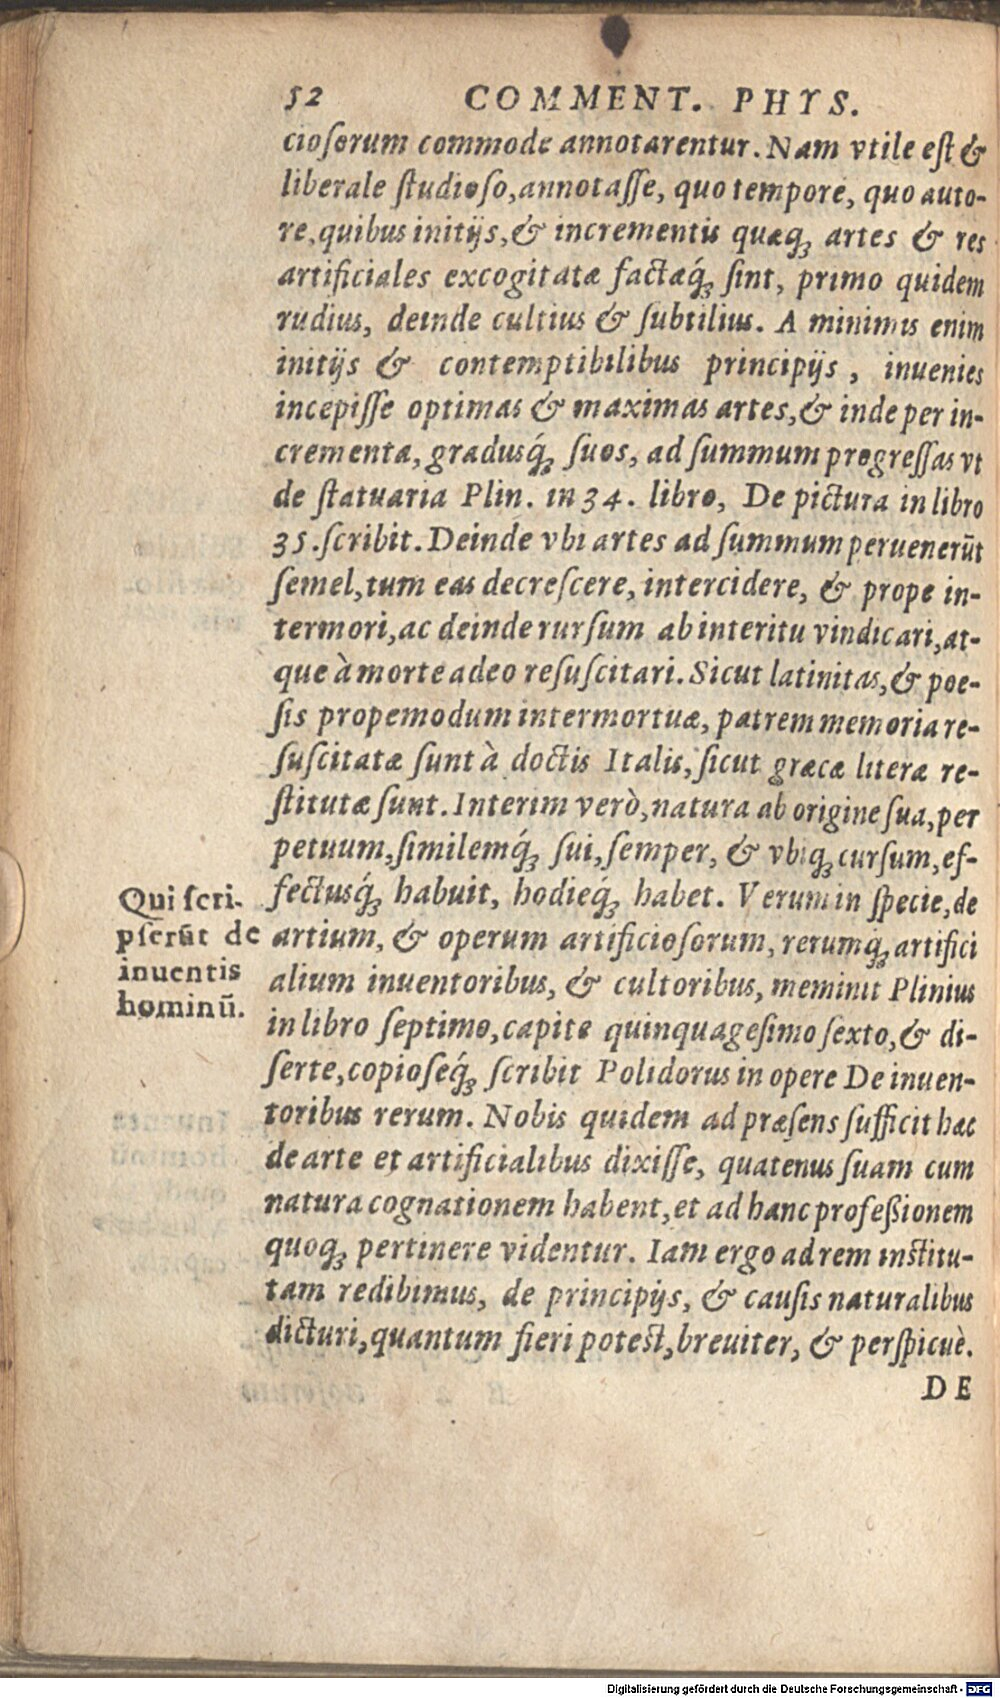 52 COMMENT. PHYS.
cioſorum commode annotarentur. Nam vtile eſt &
liberale ſtudioſo, annotaſſe, quo tempore, quo auto-
re, quibus initijs, & incrementis quæq; artes & res
artificiales excogitatæ factæq́; ſint, primo quidem
rudius, deinde cultius & ſubtilius. A minimis enim
initijs & contemptibilibus principijs, inuenies
incepiſſe optimas & maximas artes, & inde per in-
crementa, gradusq́; ſuos, ad ſummum progreſſas vt
de ſtatuaria Plin. in 34. libro, De pictura in libro
35. ſcribit. Deinde vbi artes ad ſummum peruenerũt
ſemel, tum eas decreſcere, intercidere, & prope in-
termori, ac deinde rurſum ab interitu vindicari, at-
que à morte adeo reſuſcitari. Sicut latinitas, & poe-
ſis propemodum intermortuæ, patrem memoria re-
ſuſcitatæ ſunt à doctis Italis, ſicut græcæ literæ re-
ſtitutæ ſunt. Interim verò, natura ab origine ſua, per
petuum, ſimilemq́; ſui, ſemper, & vbiq; curſum, ef-
fectusq́; habuit, hodieq́; habet. Verum in ſpecie, de
artium, & operum artificioſorum, rerumq; artifici
alium inuentoribus, & cultoribus, meminit Plinius
in libro ſeptimo, capite quinquageſimo ſexto, & di-
ſerte, copioſeq́; ſcribit Polidorus in opere De inuen-
toribus rerum. Nobis quidem ad præſens ſufficit hac
de arte et artificialibus dixiſſe, quatenus ſuam cum
natura cognationem habent, et ad hanc profeßionem
quoq; pertinere videntur. Iam ergo ad rem inſtitu-
tam redibimus, de principijs, & cauſis naturalibus
dicturi, quantum fieri poteſt, breuiter, & perſpicuè.
DE
Qui ſcri-
pſerũt de
inuentis
hominũ.
Digitalisierung gefördert durch die Deutsche Forschungsgemeinschaft - DFG